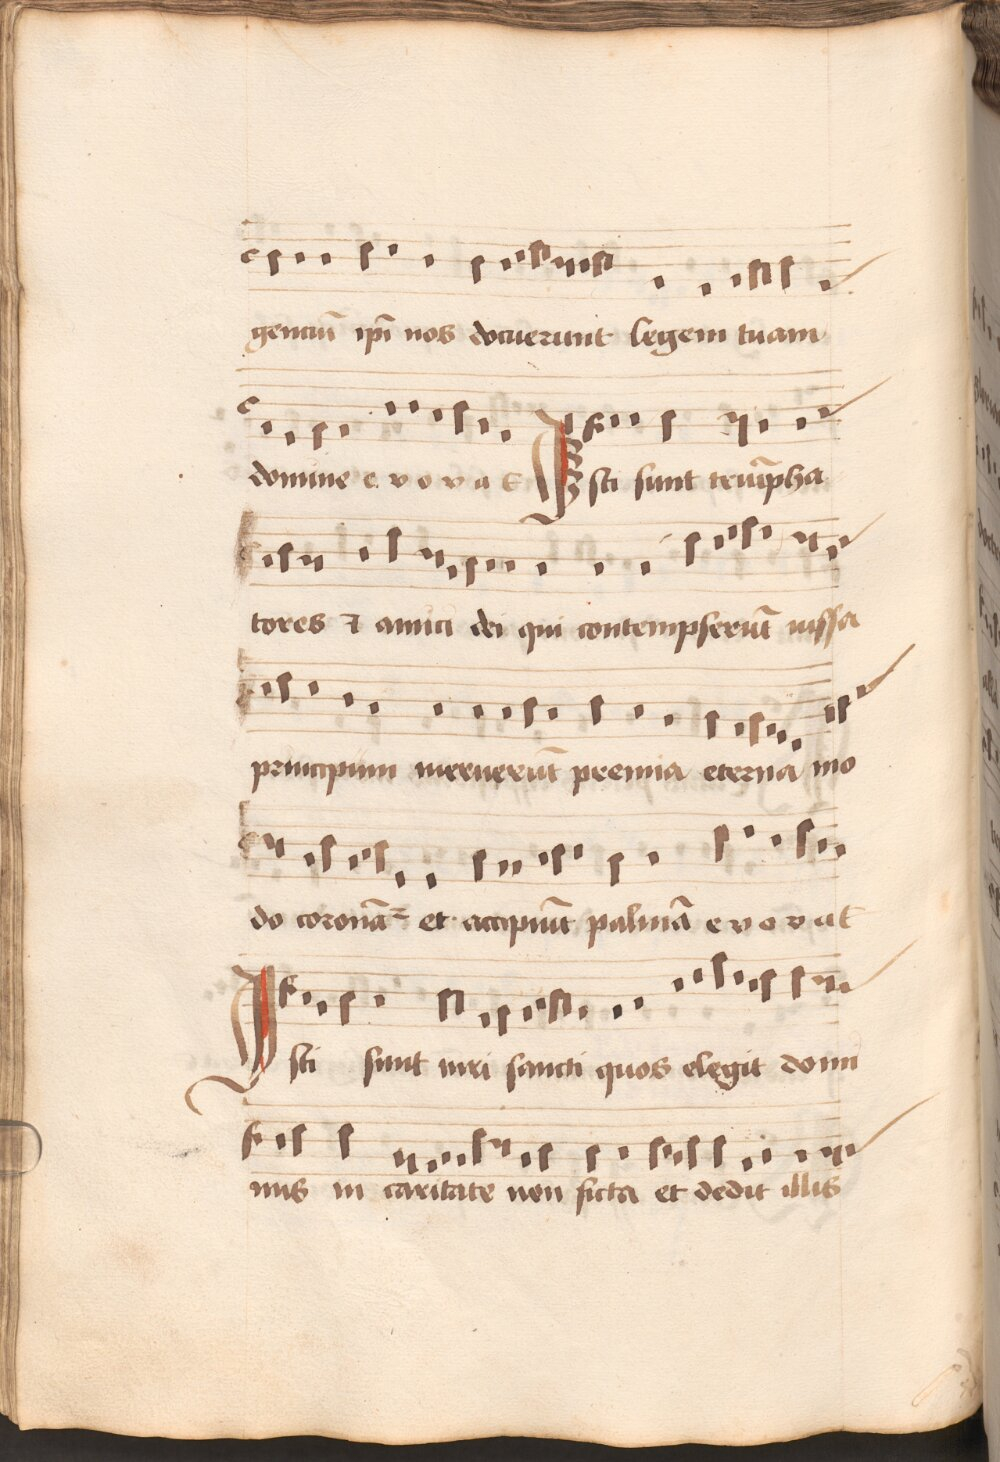 genciū ip̄i nos docuerunt legem tuam
domine e v o v a E Isti sunt triūpha
tores ⁊ amici dei qui contempserūt iussa
principum meruerūt premia eterna mo
do coronāt̄ et accipiūt palmā e v o v a E
Isti sunt viri sancti quos elegit domi
nus in caritate non ficta et dedit illis